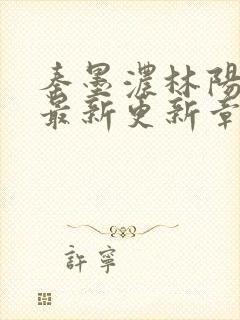 秦墨濃林陽
最新更新章
許寧